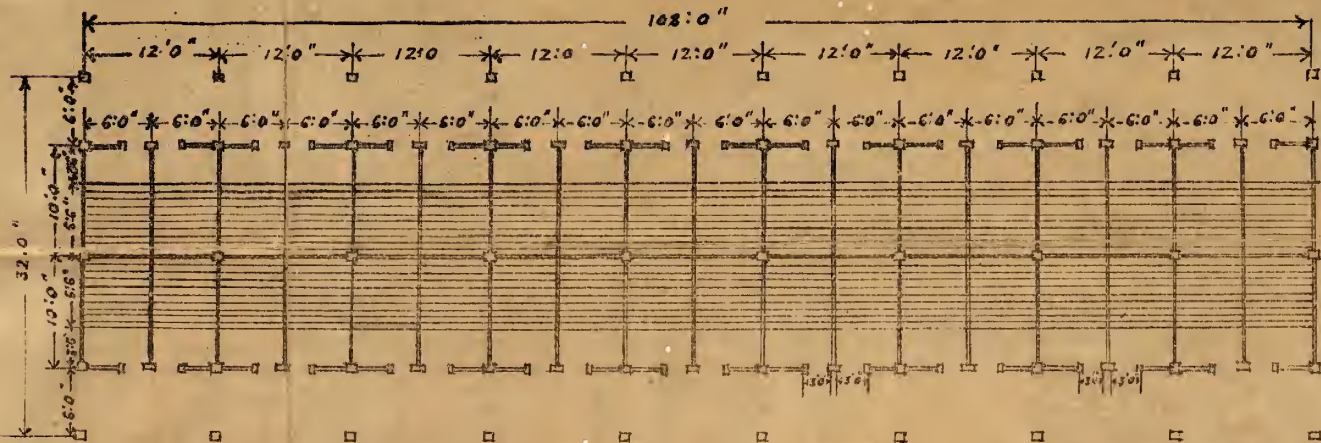 108:0"
12'0" 12'0" 12:0 12:0 12:0" 12:0" 12'0" 12'0" 12'0"
6:0" 6:0" 6:0" 6:0" 6:0" 6:0" 6:0" 6:0" 6:0" 6:0" 6:0" 6:0 6:0" 6:0" 6:0" 6:0" 6:0" 6:0
6:0"
10:0"
6:6"
32.0"
10:0"
6:6"
6:0"
3'0" 3'0" 3'0" 3'0"